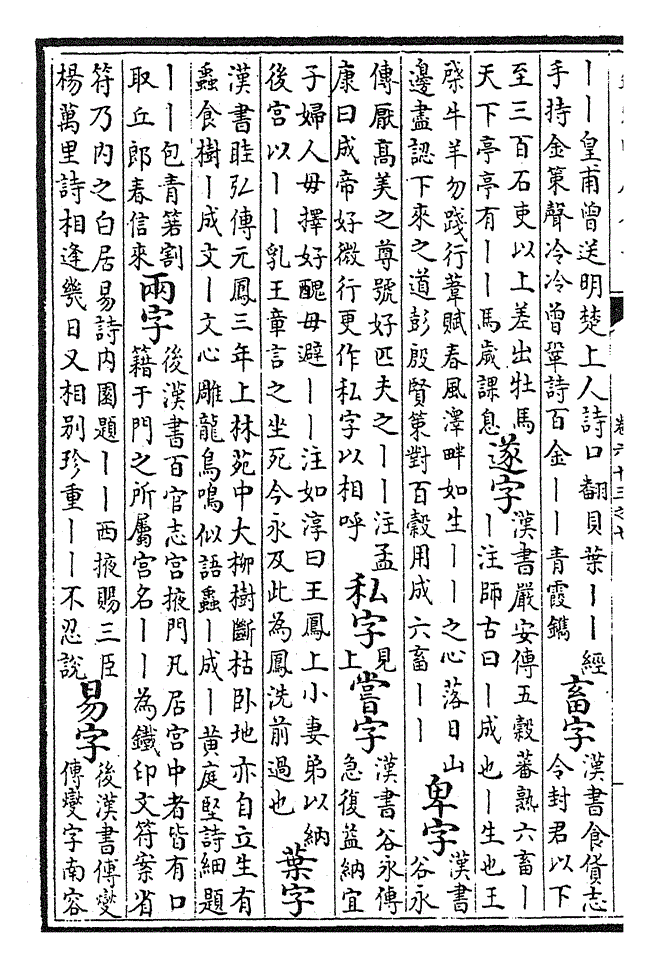 丨丨皇甫曾送明楚上人詩口翻貝葉丨丨經
手持金策聲冷冷曾鞏詩百金丨丨青霞鐫
畜字
漢書食貨志
令封君以下
至三百石吏以上差出牡馬
天下亭亭有丨丨馬歲課息
遂字
漢書嚴安傳五穀蕃熟六畜丨
丨注師古曰丨成也丨生也王
棨牛羊勿踐行葦賦春風澤畔如生丨丨之心落日山
邊盡認下來之道彭殷賢策對百穀用成六畜丨丨
卑字
漢書
谷永
傳厭高美之尊號好匹夫之丨丨注孟
康曰成帝好微行更作私字以相呼
私字
見
上
嘗字
漢書谷永傳
急復益納宜
子婦人毋擇好醜毋避丨丨注如淳曰王鳳上小妻弟以納
後宮以丨丨乳王章言之坐死今永及此為鳳洗前過也
葉字
漢書眭弘傳元鳳三年上林苑中大柳樹斷枯卧地亦自立生有
蟲食樹丨成文丨文心雕龍鳥鳴似語蟲丨成丨黃庭堅詩細題
丨丨包青箬割
取丘郎春信來
兩字
後漢書百官志宮掖門凡居宮中者皆有口
籍于門之所屬宮名丨丨為鐵印文符案省
符乃內之白居易詩内園題丨丨西掖賜三臣
楊萬里詩相逢幾日又相别珍重丨丨不忍說
易字
後漢書傅燮
傳燮字南容